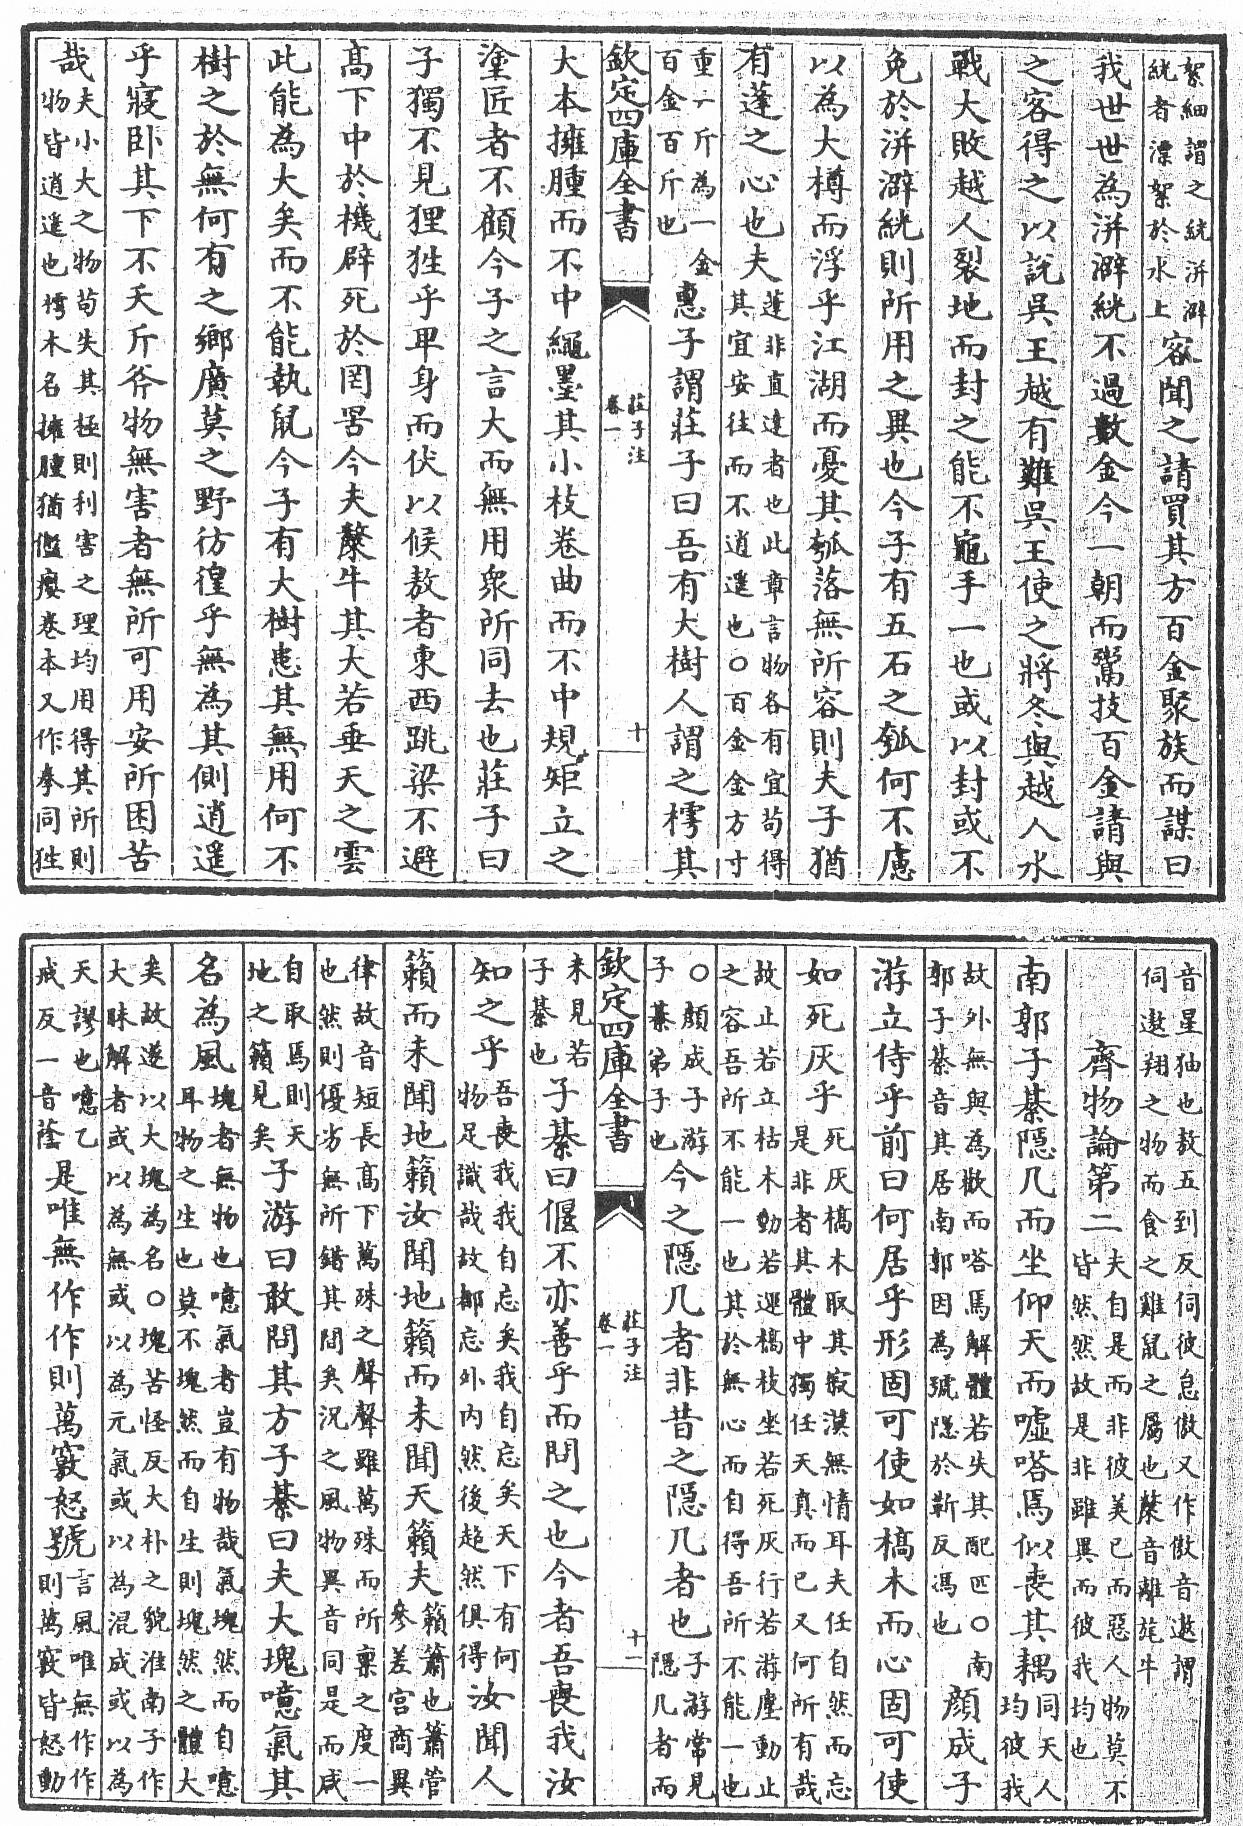 絮細謂之絖洴澼
絖者漂絮於水上
客聞之請買其方百金聚族而謀曰
我世世為洴澼絖不過數金今一朝而鬻技百金請與
之客得之以說吳王越有難吳王使之將冬與越人水
戰大敗越人裂地而封之能不龜手一也或以封或不
免於洴澼絖則所用之異也今子有五石之瓠何不慮
以為大樽而浮乎江湖而憂其瓠落無所容則夫子猶
有蓬之心也夫
蓬非直達者也此章言物各有宜苟得
其宜安往而不逍遙也○百金金方寸
重一斤為一金
百金百斤也
惠子謂莊子曰吾有大樹人謂之樗其
欽定四庫全書
莊子注
卷一
十
大本擁腫而不中繩墨其小枝卷曲而不中規矩立之
塗匠者不顧今子之言大而無用衆所同去也莊子曰
子獨不見狸狌乎卑身而伏以候敖者東西跳梁不避
高下中於機辟死於罔罟今夫斄牛其大若垂天之雲
此能為大矣而不能執鼠今子有大樹患其無用何不
樹之於無何有之鄉廣莫之野彷徨乎無為其側逍遙
乎寢臥其下不夭斤斧物無害者無所可用安所困苦
哉
夫小大之物苟失其極則利害之理均用得其所則
物皆逍遙也樗木名擁腫猶癭卷本又作拳同狌
音星㹨也敖五到反伺彼怠傲又作傲音遨謂
伺遨翔之物而食之雞鼠之屬也斄音離旄牛
齊物論第二
夫自是而非彼美已而惡人物莫不
皆然然故是非雖異而彼我均也
南郭子綦隱几而坐仰天而噓嗒焉似喪其耦
同天人
均彼我
故外無與為歡而嗒焉解體若失其配匹○南
郭子綦音其居南郭因為號隱於靳反馮也
顏成子
游立侍乎前曰何居乎形固可使如槁木而心固可使
如死灰乎
死灰槁木取其寂漠無情耳夫任自然而忘
是非者其體中獨任天真而已又何所有哉
故止若立枯木動若運槁枝坐若死灰行若游塵動止
之容吾所不能一也其於無心而自得吾所不能一也
○顏成子游
子綦弟子也
今之隱几者非昔之隱几者也
子游常見
隱几者而
欽定四庫全書
莊子注
卷一
十一
未見若
子綦也
子綦曰偃不亦善乎而問之也今者吾喪我汝
知之乎
吾喪我我自忘矣我自忘矣天下有何
物足識哉故都忘外内然後超然俱得
汝聞人
籟而未聞地籟汝聞地籟而未聞天籟夫
籟簫也簫管
參差宮商異
律故音短長高下萬殊之聲聲雖萬殊而所稟之度一
也然則優劣無所錯其間矣況之風物異音同是而咸
自取焉則天
地之籟見矣
子游曰敢問其方子綦曰夫大塊噫氣其
名為風
塊者無物也噫氣者豈有物哉氣塊然而自噫
耳物之生也莫不塊然而自生則塊然之體大
矣故遂以大塊為名○塊苦怪反大朴之貌淮南子作
大昧解者或以為無或以為元氣或以為混成或以為
天謬也噫乙
戒反一音蔭
是唯無作作則萬竅怒號
言風唯無作作
則萬竅皆怒動